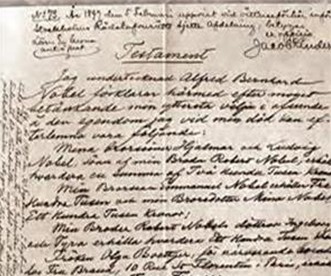 No 73. År 1897 den 5 Februari uppvist vid vittnesförhör inför
Stockholms Rådstufvurätts sjette Afdelning; betygar
å rättens
Jacob
Testament
Jag undertecknad Alfred Bernhard
Nobel förklarar härmed efter moget
betänkande min yttersta vilja i afseende
å den egendom jag vid min död kan ef-
terlemna vara följande:
Mina Brorsöner Hjalmar och Ludvig
Nobel, söner af min Broder Robert Nobel, erhålla
hvardera en summa af Två Hundra Tusen Kronor;
Min Brorson Emmanuel Nobel erhåller Tre
Hundra Tusen och min Brorsdotter Mina Nobel
Ett Hundra Tusen Kronor;
Min Broder Robert Nobels döttrar Ingeborg
och Tyra erhålla hvardera Ett Hundra Tusen
Fröken Olga Boettger, för närvarande boende
hos Fru Brand, 10 Rue St Florentin i Paris,